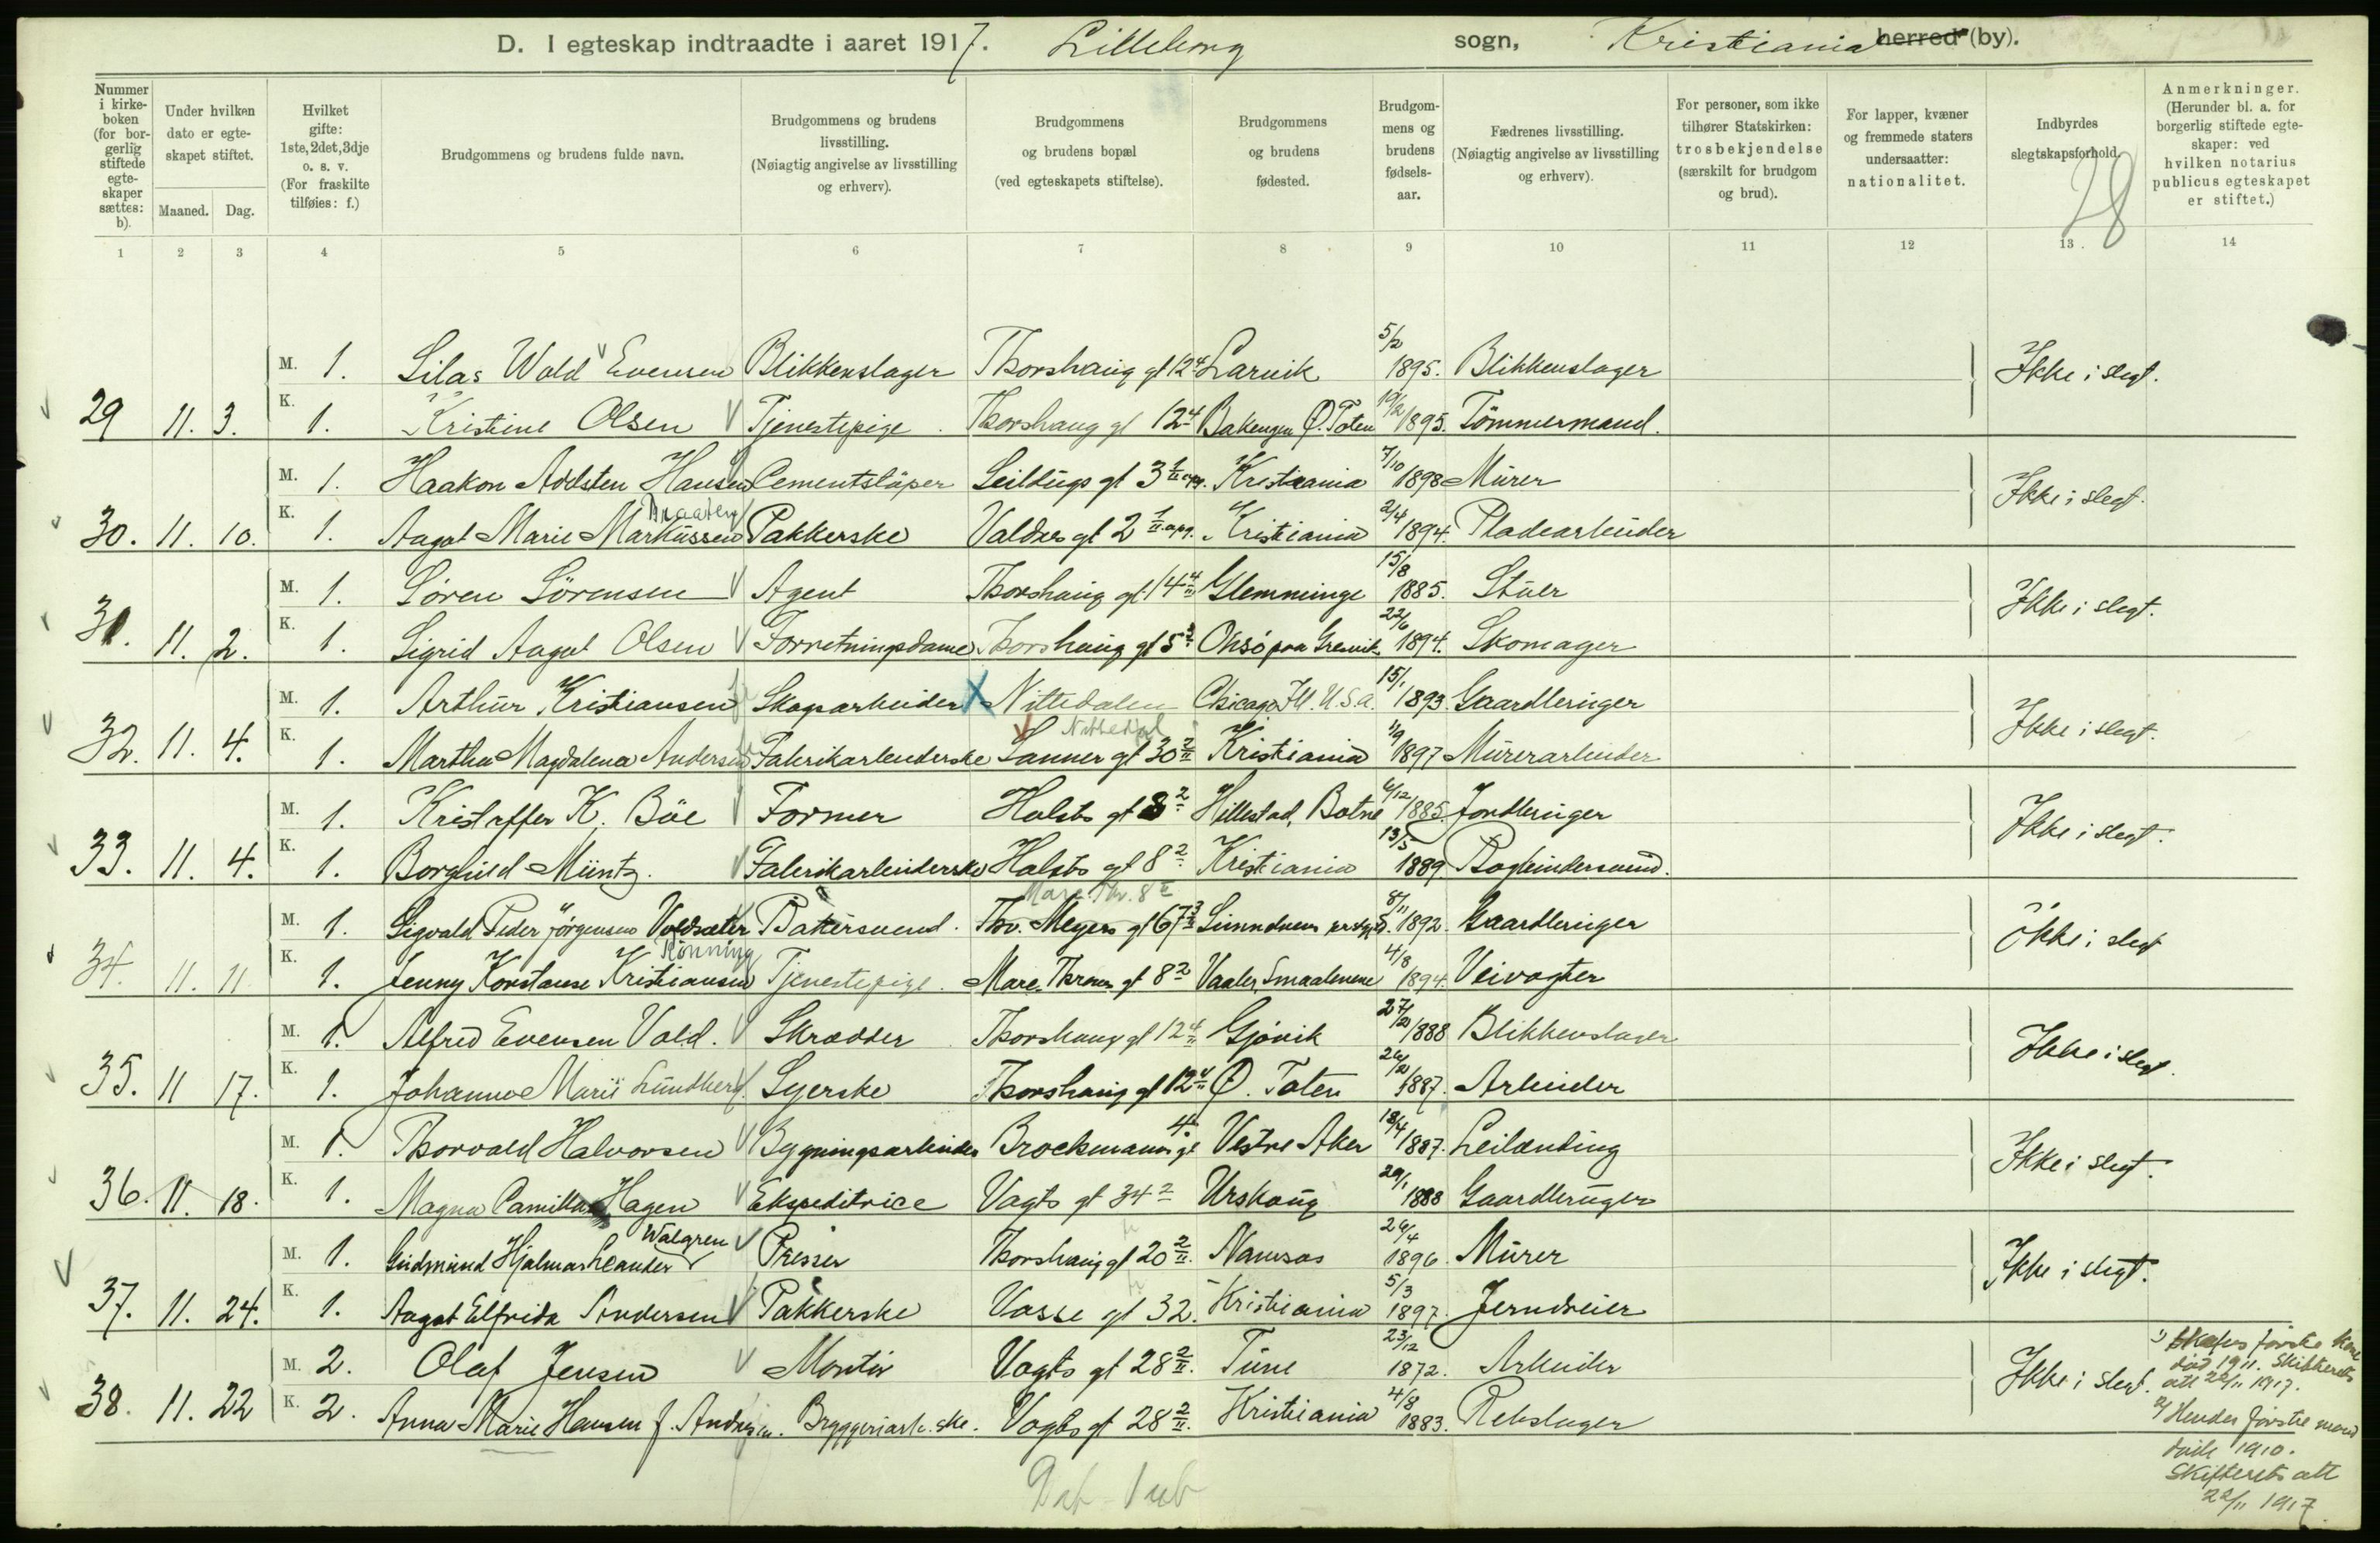 D. I egteskap indtraadte i aaret 1917. Lilleborg sogn, Kristiania herred (by).
Nummer i kirkeboken (for borgerlig stiftede egteskaper sættes: b).
Under hvilken dato er egteskapet stiftet.
Maaned. Dag.
Hvilket gifte: 1ste, 2det, 3dje o. s. v. (For fraskilte tilføies: f.)
Brudgommens og brudens fulde navn.
Brudgommens og brudens livsstilling. (Nøiagtig angivelse av livsstilling og erhverv).
Brudgommens og brudens bopæl (ved egteskapets stiftelse).
Brudgommens og brudens fødested.
Brudgommens og brudens fødselsaar.
Fædrenes livsstilling. (Nøiagtig angivelse av livsstilling og erhverv).
For personer, som ikke tilhører Statskirken: trosbekjendelse (særskilt for brudgom og brud).
For lapper, kvæner og fremmede staters undersaatter: nationalitet.
Indbyrdes slegtskapsforhold.
28
Anmerkninger. (Herunder bl. a. for borgerlig stiftede egteskaper: ved hvilken notarius publicus egteskapet er stiftet.)
1 2 3 4 5 6 7 8 9 10 11 12 13 14
M. 1. Silas Wold Evensen Blikkenslager Thorshaug gt 12 4 Larvik 5/2 1895. Blikkenslager Ikke i slegt.
29 11. 3. K. 1. Kristine Olsen Tjenestepige Thorshaug gt 12 4 Bakengen Ø. Toten 19/2 1895. Tömmermand.
M. 1. Haakon Adelsten Hansen Cementstöper Seildugs gt 3 1/II opg. Kristiania 7/10 1898 Murer Ikke i slegt.
Braaten
30. 11. 10. K. 1. Aagot Marie Markussen Pakkerske Valdres gt 2 1/II opg. Kristiania 2/4 1894. Pladearbeider
M. 1. Sören Sörensen Agent Thorshaug gt 14 4/III Glemminge 15/8 1885. Stuer Ikke i slegt.
31. 11. 2. K. 1. Sigrid Aagot Olsen Forretningsdame Thorshaug gt 5 2 Onsö paa Gresvik 22/6 1894. Skomager
M. 1. Arthur Kristiansen Skogsarbeider X Nittedalen Chicago Ill. U.S.a. 15/1 1893. Gaardbruger Ikke i slegt.
Nittedal
32. 11. 4. K. 1. Martha Magdalena Andersen Fabrikarbeiderske Sanner gt 30 2/II Kristiania 1/9 1897 Murerarbeider
M. 1. Kristoffer K. Böe Former Holsts gt 8 2 Hillestad, Botne 6/12 1885. Jordbruger Ikke i slegt.
33. 11. 4. K. 1. Borghild Müntz. Fabrikarbeiderske Holsts gt 8 2 Kristiania 13/5 1889 Bogbindersvend.
Marc. Thr. 8 II
M. 1. Sigvald Peder Jörgensen Voldsæter Bakersvend. Thv. Meyers gt 67 3/II Sunndvens prstgd. 8/11 1892. Gaardbruger Ikke i slegt
Rönning
34. 11. 11 K. 1. Jenny Konstanse Kristiansen Tjenestepige. Marc. Thranes gt 8 2 Vaaler, Smaalenene 4/8 1894. Veivogter
M. 1. Alfred Evensen Vold. Skrædder Thorshaug gt 12 4/II Gjövik 27/2 1888 Blikkenslager Ikke i slegt.
35. 11 17. K. 1. Johanne Marie Lundberg. Syerske Thorshaug gt 12 4/II Ø. Toten 26/2 1887. Arbeider
M. 1. Thorvald Halvorsen Bygningsarbeider Brockmanns gt 4. Vestre Aker 18/4 1887. Leilending Ikke i slegt.
36. 11. 18. K. 1. Magna Camilla Hagen Ekspeditrice Vogts gt 34 2 Urskoug 29/1 1888 Gaardbruger
Walgren
M. 1. Gudmund Hjalmar Leander Presser Thorshaug gt 20 2/II. Namsos 24/4 1896. Murer Ikke i slegt.
37. 11. 24. K. 1. Aagot Elfrida Andersen Pakkerske Vosse gt 32. Kristiania 5/3 1897. Jerndreier
M. 2. Olaf Jensen Montör Vogts gt 28 2/II. Tune 23/12 1872. Arbeider Ikke i slegt.
38. 11. 22 K. 2. Anna Marie Hansen f. Andresen. Bryggeriarb.ske. Vogts gt 28 2/II. Kristiania 4/8 1883. Rebslager
1) förste kone död 1911. Skifterets att 22/11 1917.
2) Hendes förste mand döde 1910.
Skifterets att
22/11 1917